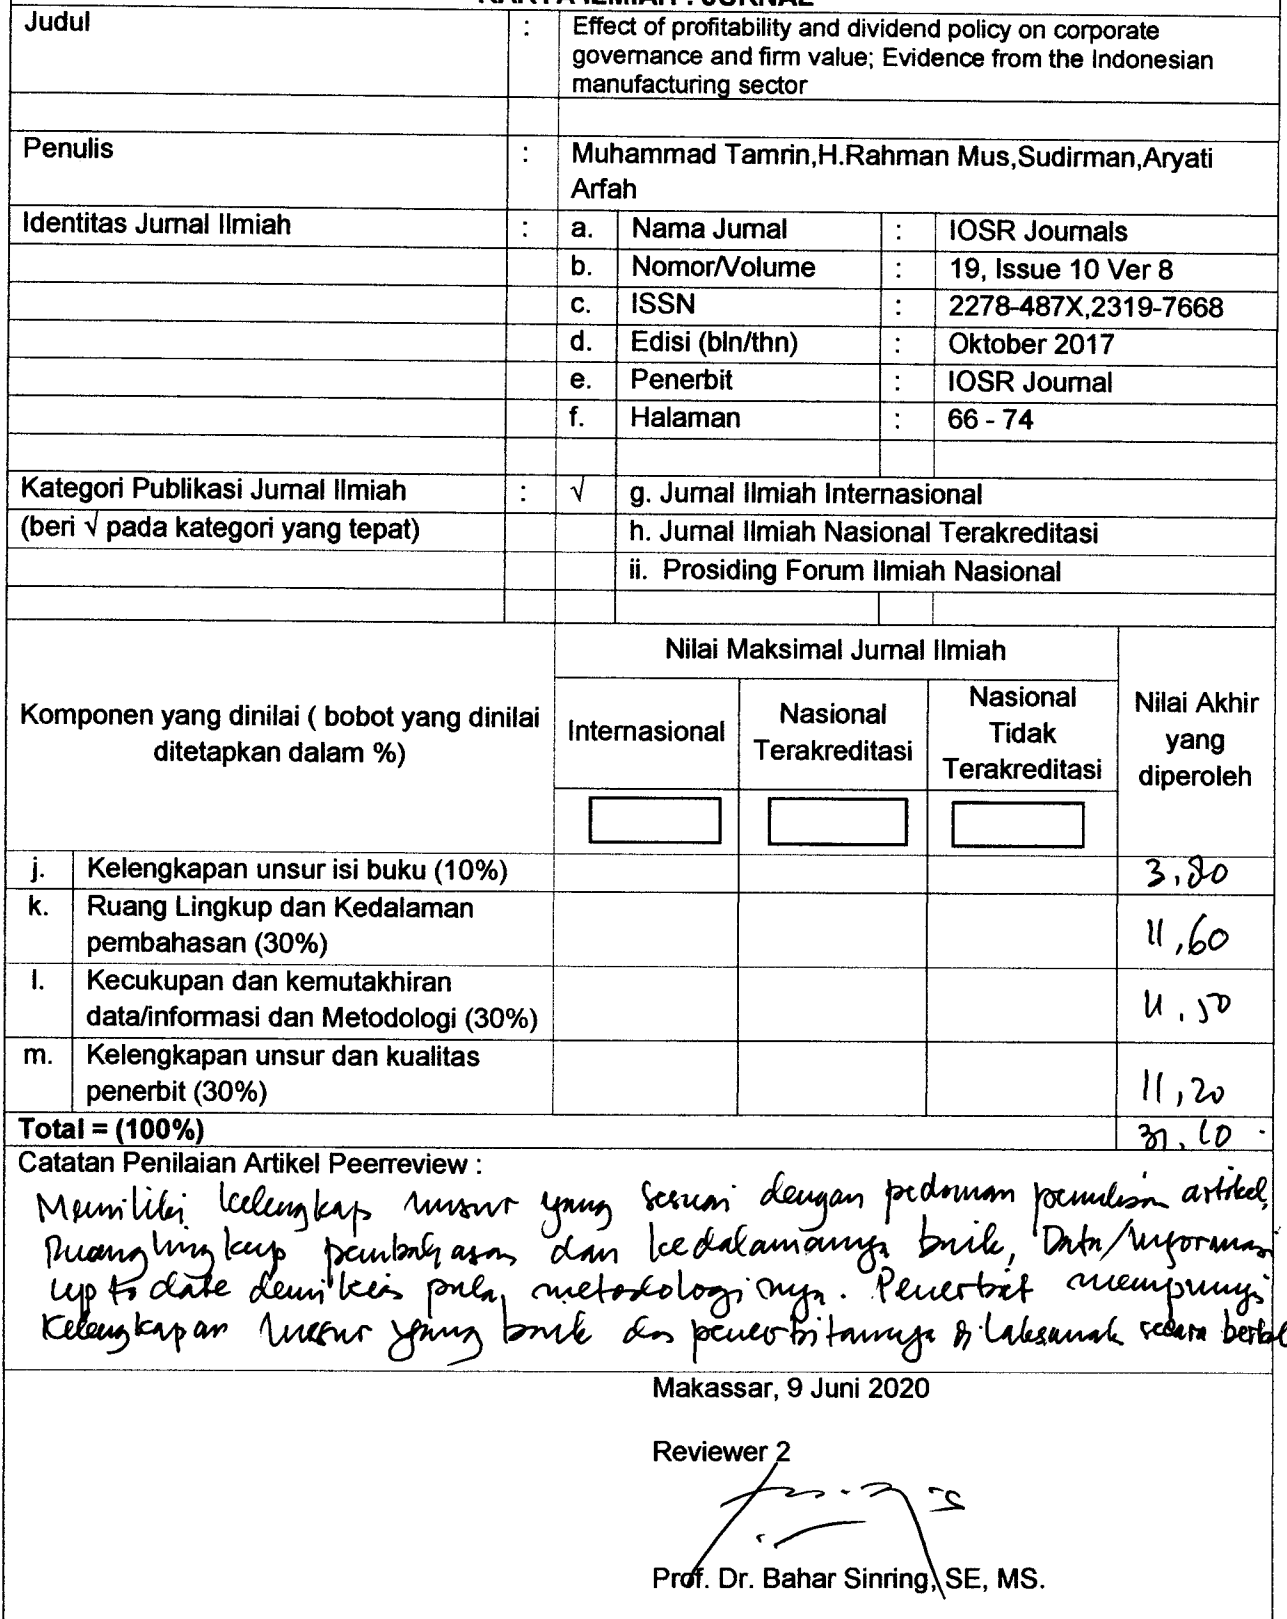 KARYA ILMIAH : JURNAL
Judul : Effect of profitability and dividend policy on corporate
governance and firm value; Evidence from the Indonesian
manufacturing sector
Penulis : Muhammad Tamrin,H.Rahman Mus,Sudirman,Aryati
Arfah
Identitas Jurnal Ilmiah : a. Nama Jurnal : IOSR Journals
b. Nomor/Volume : 19, Issue 10 Ver 8
c. ISSN : 2278-487X,2319-7668
d. Edisi (bln/thn) : Oktober 2017
e. Penerbit : IOSR Journal
f. Halaman : 66 - 74
Kategori Publikasi Jurnal Ilmiah : √ g. Jurnal Ilmiah Internasional
(beri √ pada kategori yang tepat) h. Jurnal Ilmiah Nasional Terakreditasi
ii. Prosiding Forum Ilmiah Nasional
Komponen yang dinilai ( bobot yang dinilai
ditetapkan dalam %)
Nilai Maksimal Jurnal Ilmiah
Internasional
Nasional
Terakreditasi
Nasional
Tidak
Terakreditasi
Nilai Akhir
yang
diperoleh
j. Kelengkapan unsur isi buku (10%) 3,80
k. Ruang Lingkup dan Kedalaman
pembahasan (30%) 11,60
l. Kecukupan dan kemutakhiran
data/informasi dan Metodologi (30%) 11,50
m. Kelengkapan unsur dan kualitas
penerbit (30%) 11,20
Total = (100%)
Catatan Penilaian Artikel Peerreview :
Memiliki kelengkap unsur yang sesuai dengan pedoman penulisan artikel,
Ruang lingkup pembahasan dan kedalamannya baik, Data/Informasi
up to date demikian pula metodologinya. Penerbit mempunyi
Kelengkapan unsur yang baik dan penerbitannya dilaksanak secara berkal
Makassar, 9 Juni 2020
Reviewer 2
Prof. Dr. Bahar Sinring, SE, MS.